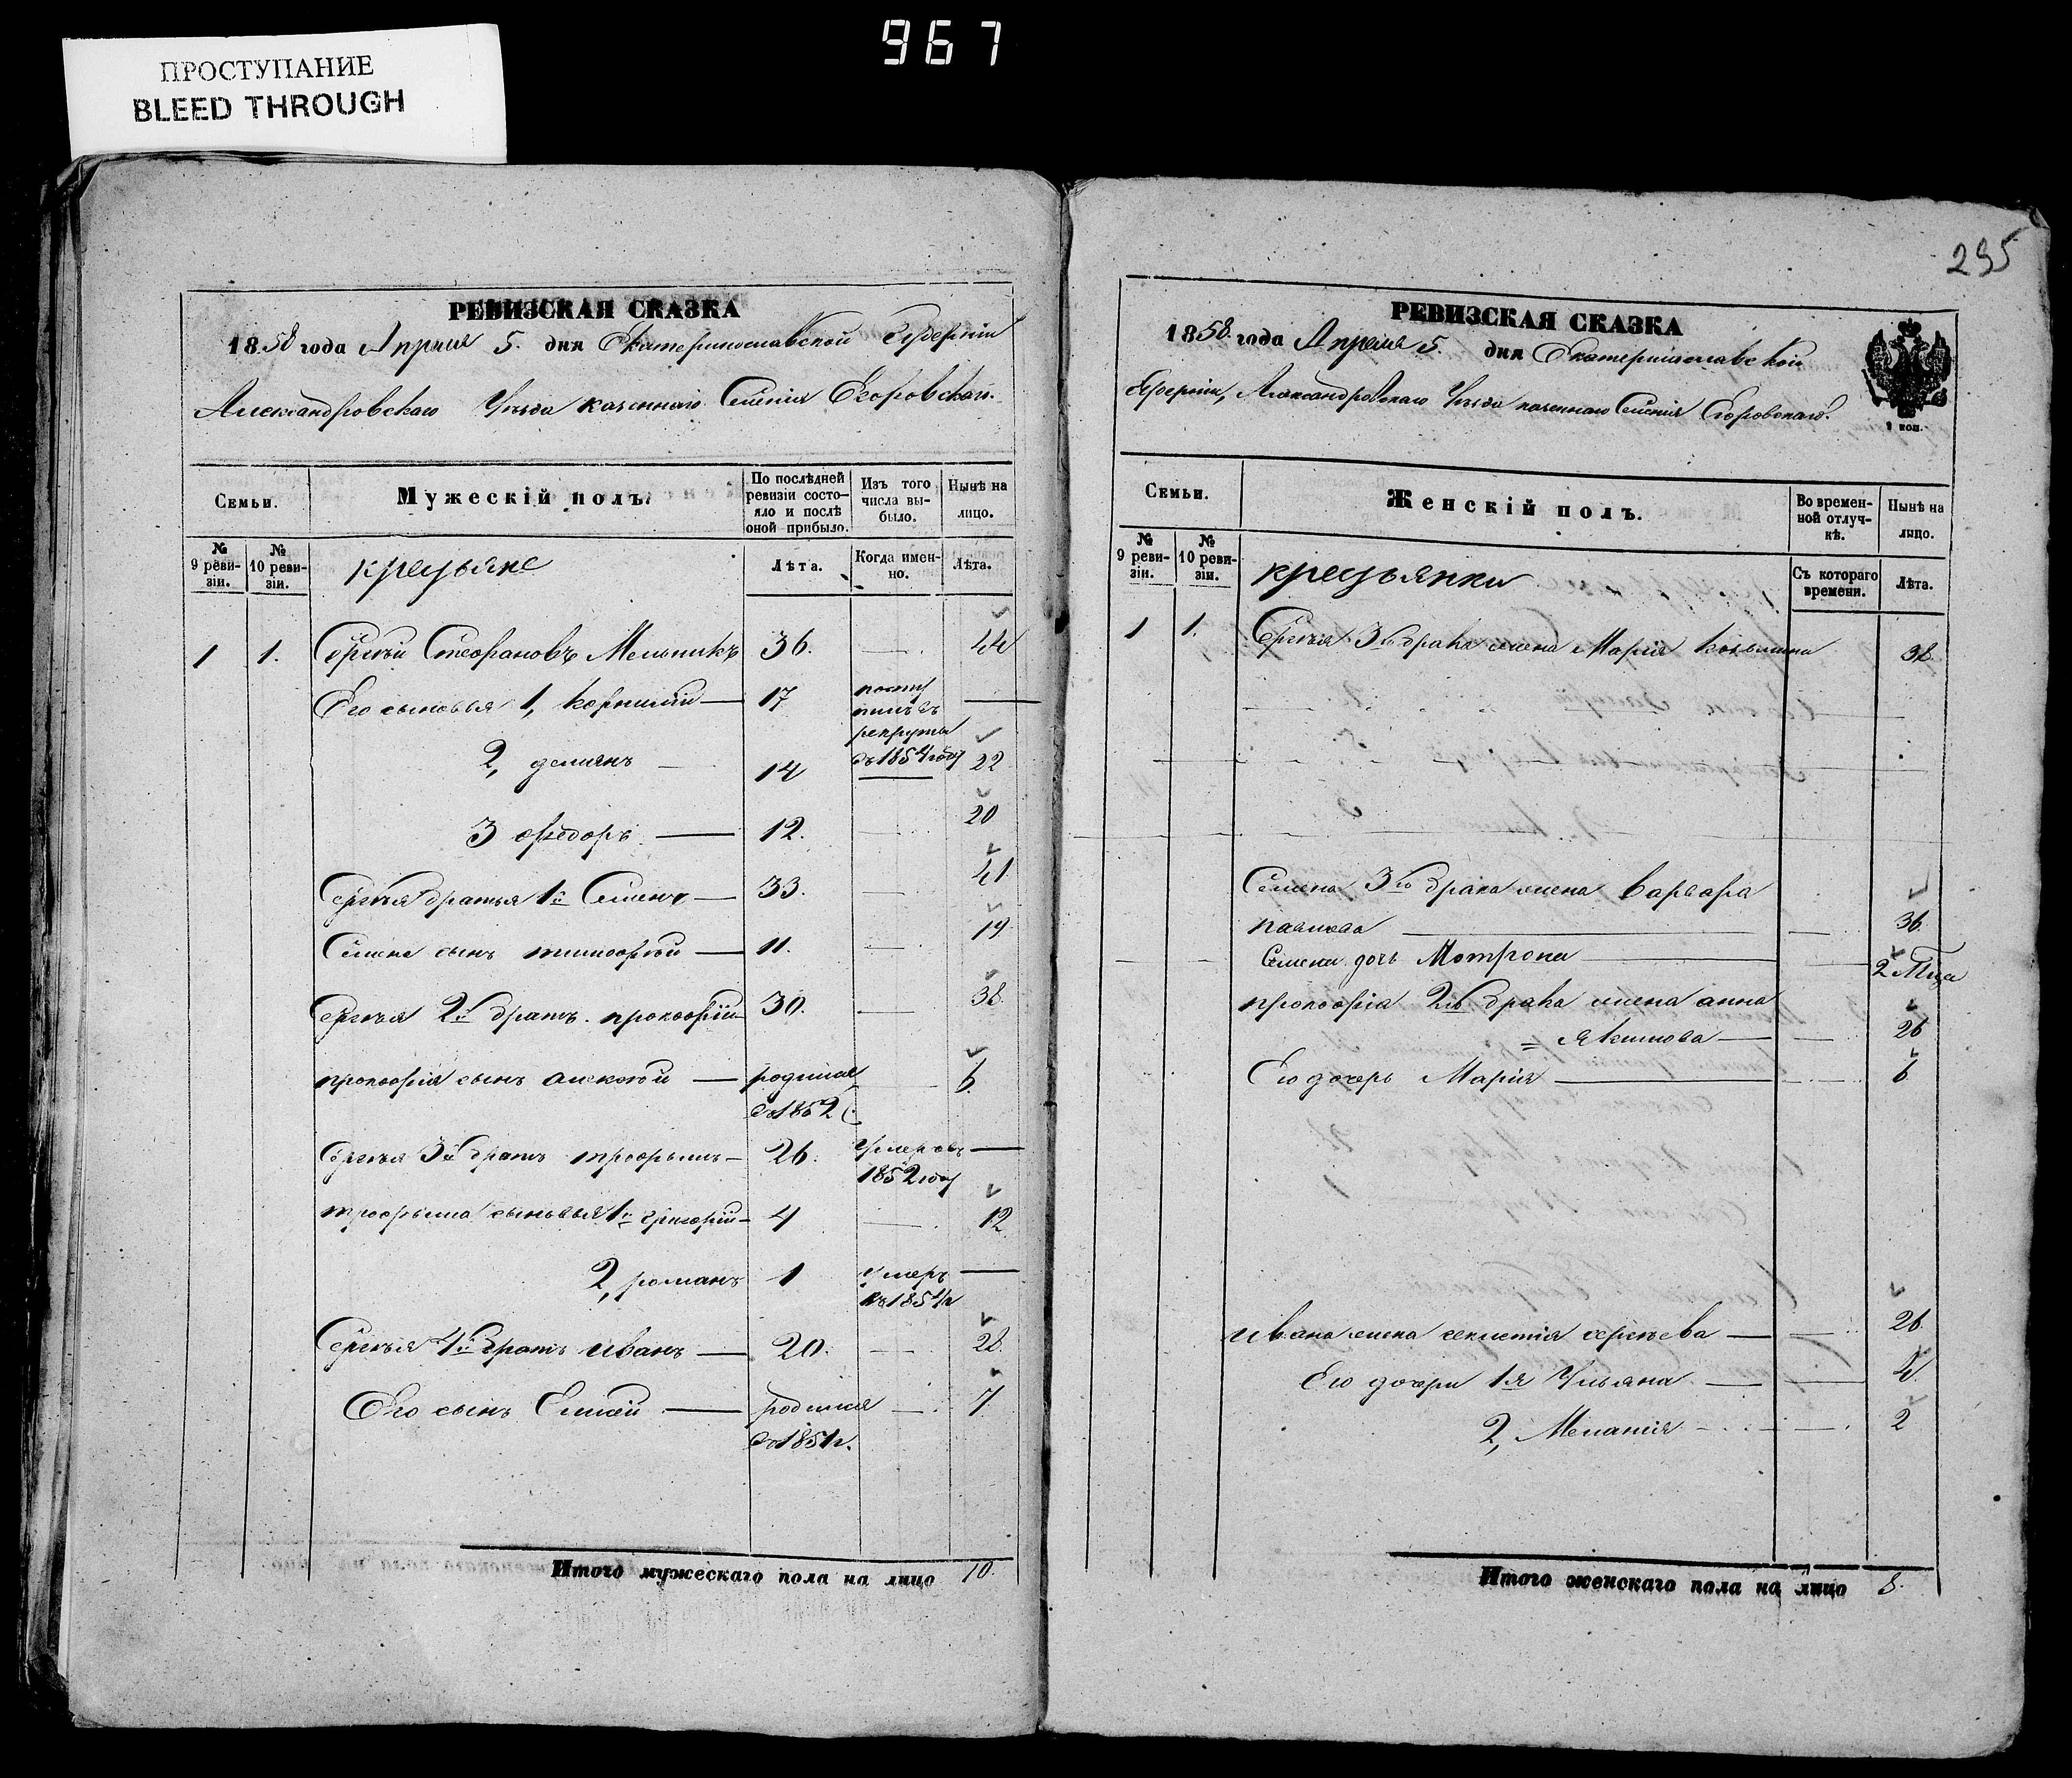 967
ПРОСТУПАНИЕ
BLEED THROUGH
РЕВИЗСКАЯ СКАЗКА
1858 года Апреля 5. дня Екатеринославской Губернии
Александровского Уѣзда казеннаго Селенія Егоровскаго.
Семьи.
Мужескій полъ.
По послѣдней ревизіи состо-
яло и послѣ оной прибыло.
Изъ того числа вы-
было.
Нынѣ на лицо.
№ 9 реви-
зіи.
№ 10 реви-
зіи.
крестьяне
Лѣта.
Когда имен-
но.
Лѣта.
1 1. Сергѣй Стефановъ Мельникъ 36. — 44
Его сыновья 1, корнилій — 17 посту
пилъ въ
рекруты
въ 1854 году —
2, демянъ — 14 — 22
3 фѣдоръ — 12. — 20
Сергѣя братья 1й Семенъ — 33. — 41
Семена сынъ тимофѣй — 11. — 19
Сергѣя 2й братъ прокофій 30. — 38.
прокофія сынъ алексѣй — родился — 6.
въ 1852
Сергѣя 3й братъ трофымъ — 26. умеръ въ —
1852 году
трофыма сыновья 1й григорій — 4 — 12
2, романъ 1 умеръ —
въ 1854 г
Сергѣя 4й братъ иванъ — 20. — 28.
Его сынъ Елисей — родился — 7.
въ 1851 г.
Итого мужескаго пола на лицо 10.
295
РЕВИЗСКАЯ СКАЗКА
1858. года Апреля 5. дня Екатеринославской
Губерніи, Александровскаго Уѣзда казеннаго Селенія Егоровскаго.
1 коп.
Семьи.
Женскій полъ.
Во времен-
ной отлуч-
кѣ.
Нынѣ на лицо.
№ 9 реви-
зіи.
№ 10 реви-
зіи.
крестьянки
Съ котораго времени.
Лѣта.
1 1. Сергѣя 3го брака жена Марія 38.
Семена 3го брака жена варвара
павлова — 36.
Семена дочь Мотрона — 2 Мца
прокофія 2го брака жена анна
= якимова — 26
Его дочерь Марія — 6
ивана жена сергѣева — 26
Его дочери 1я Ульяна — 4.
2, Меланія — 2
Итого женскаго пола на лицо 8.